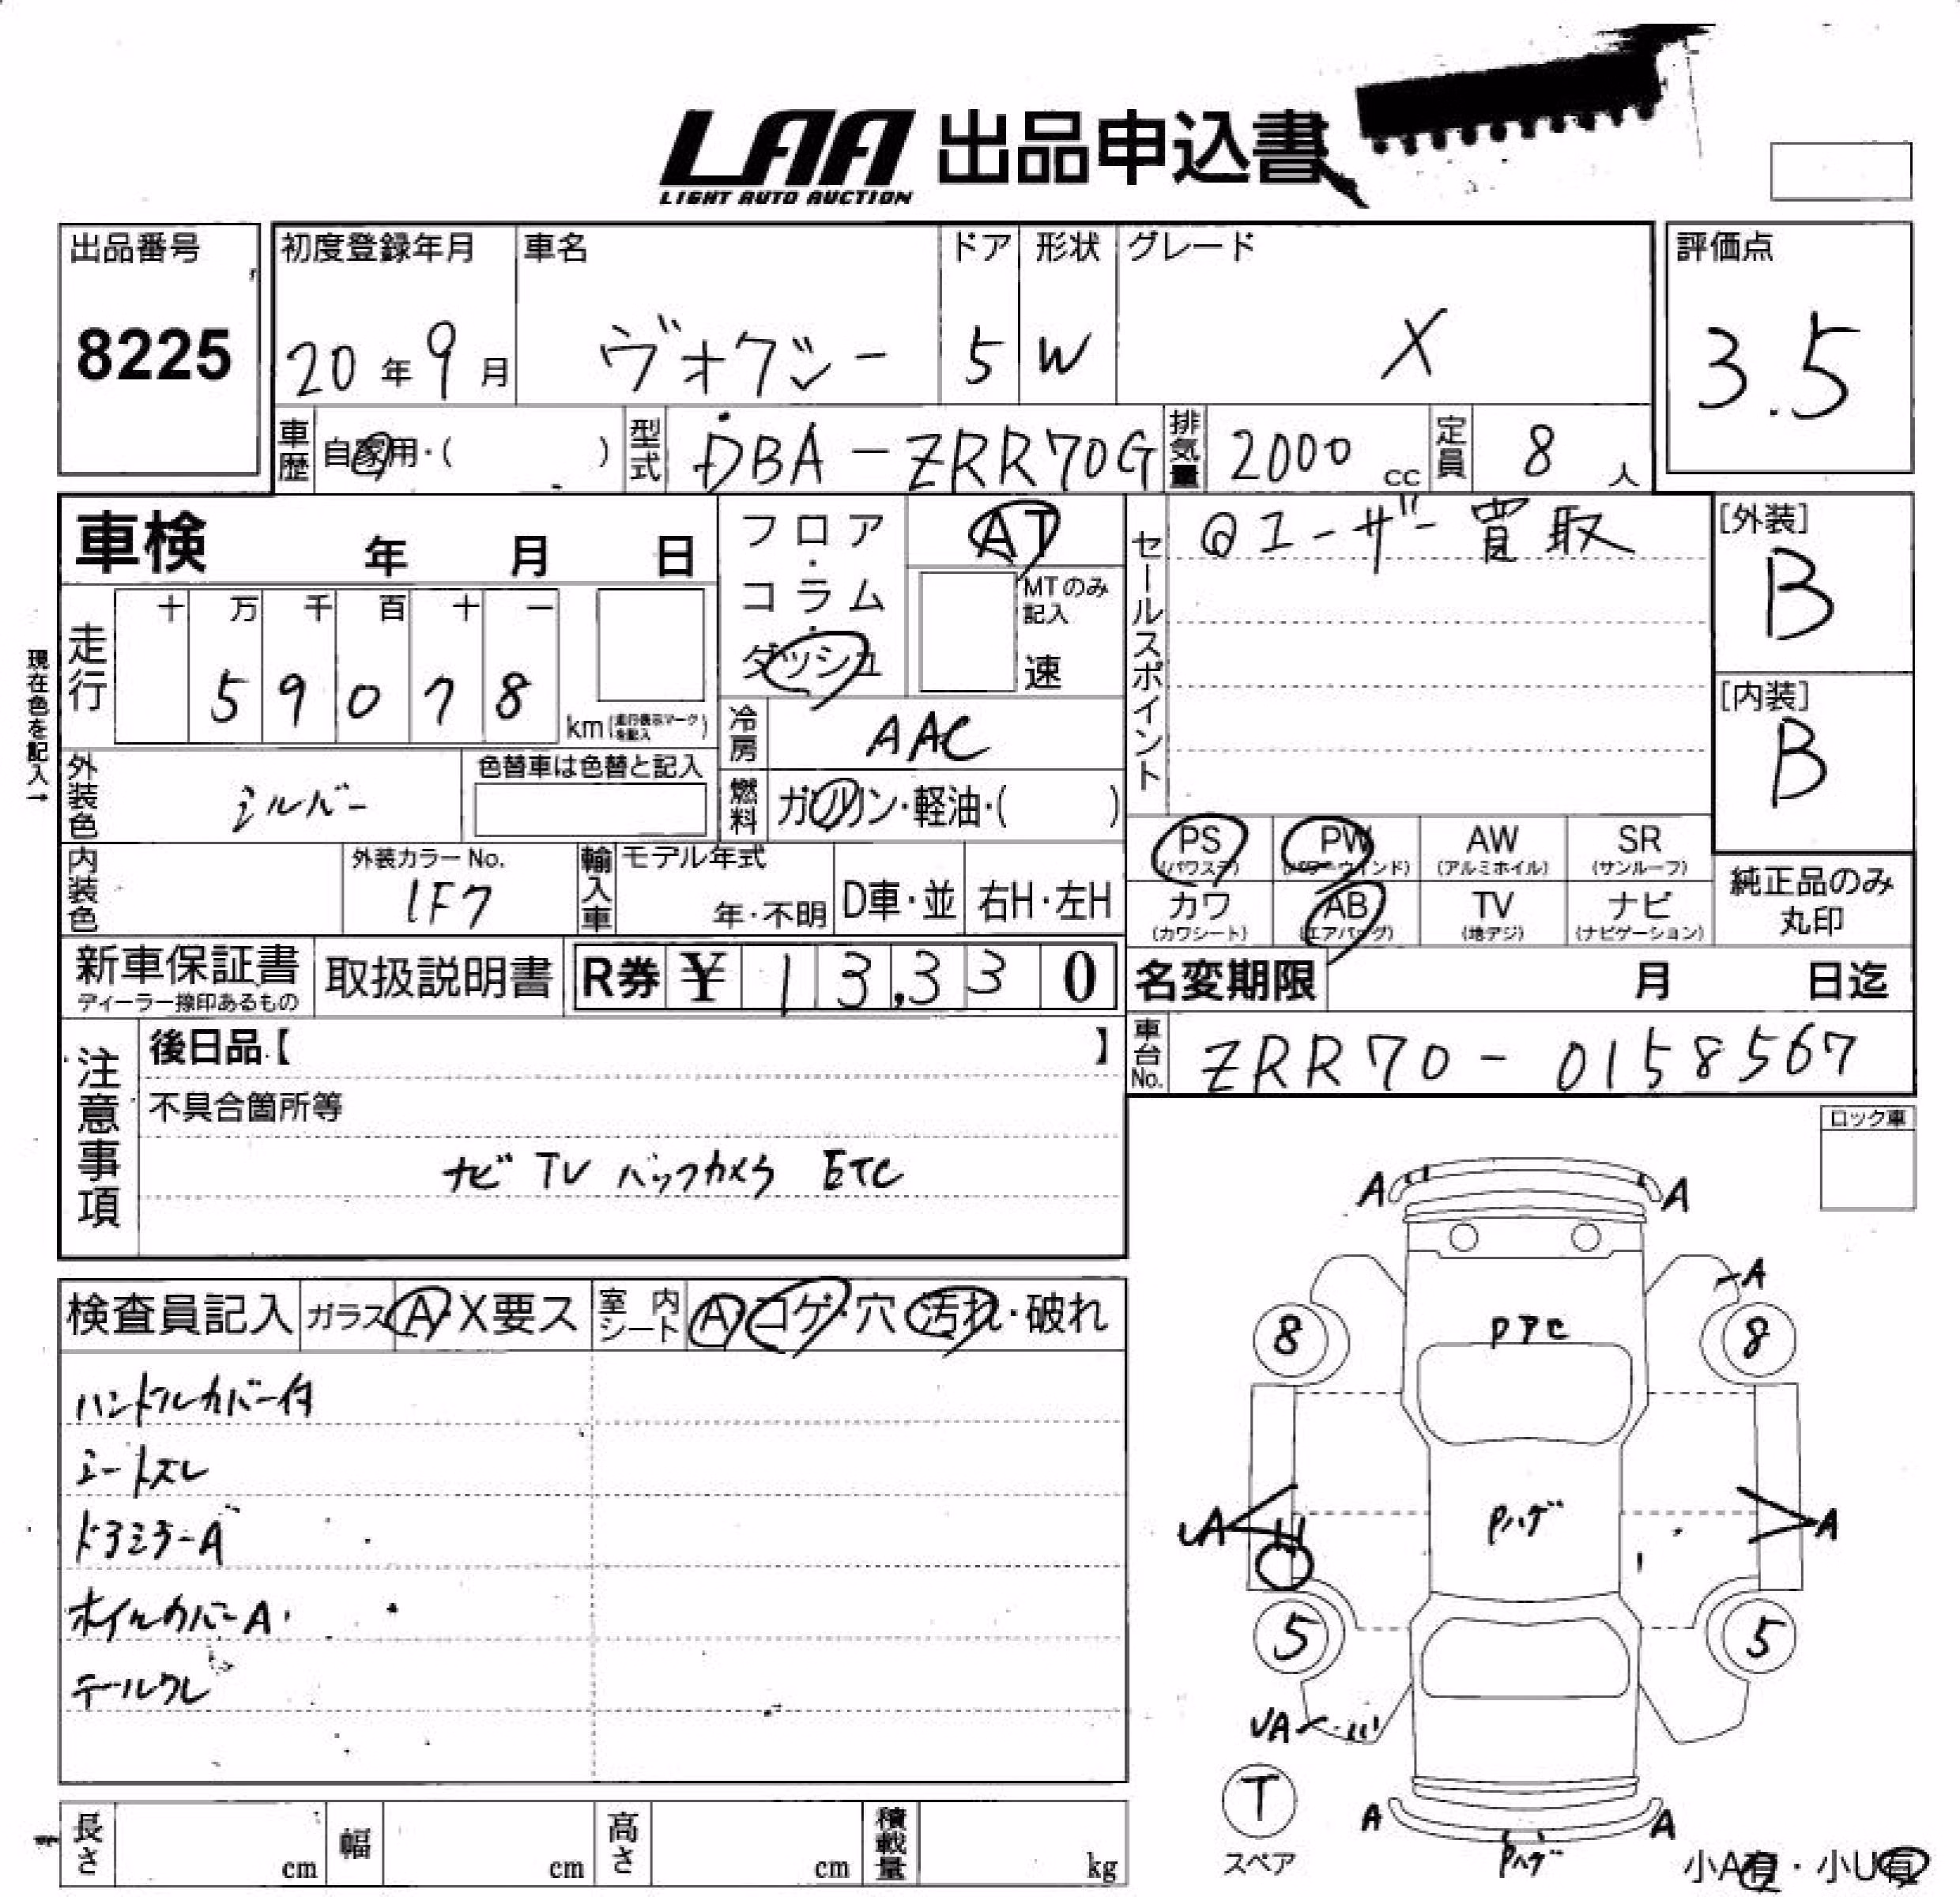 LAA 出品申込書
LIGHT AUTO AUCTION
出品番号
8225
初度登録年月 車名 ドア 形状 グレード
20年 9月 ヴォクシー 5 W X
評価点
3.5
車歴 自家用・( ) 型式 DBA-ZRR70G 排気量 2000 cc 定員 8 人
車検 年 月 日
フロア・コラム・ダッシュ
AT
MTのみ記入
速
セールスポイント
@ユーザー買取
[外装]
B
[内装]
B
現在色を記入→
走行
十 万 千 百 十 一
5 9 0 7 8
km(走行表示マークを記入)
冷房 AAC
外装色 シルバー
色替車は色替と記入
燃料 ガソリン・軽油・( )
PS (パワステ) PW (パワーウインド) AW (アルミホイル) SR (サンルーフ)
カワ (カワシート) AB (エアバッグ) TV (地デジ) ナビ (ナビゲーション)
純正品のみ丸印
内装色
外装カラーNo.
1F7
輸入車 モデル年式
年・不明 D車・並 右H・左H
新車保証書
ディーラー捺印あるもの
取扱説明書
R券 ¥ 13,330
名変期限 月 日迄
車台No. ZRR70-0158567
注意事項
後日品【 】
不具合箇所等
ナビ TV バックカメラ ETC
ロック車
検査員記入 ガラス A・X要ス 室内シート A・コゲ・穴・汚れ・破れ
ハンドルカバー付
シートスレ
ドアミラーA
ホイルカバーA
テールワレ
A A
A
8 8
Pアセ
Pハゲ
UA A
5 5
UA
T
スペア
A A
Pハゲ
小A有・小U有
長さ cm 幅 cm 高さ cm 積載量 kg